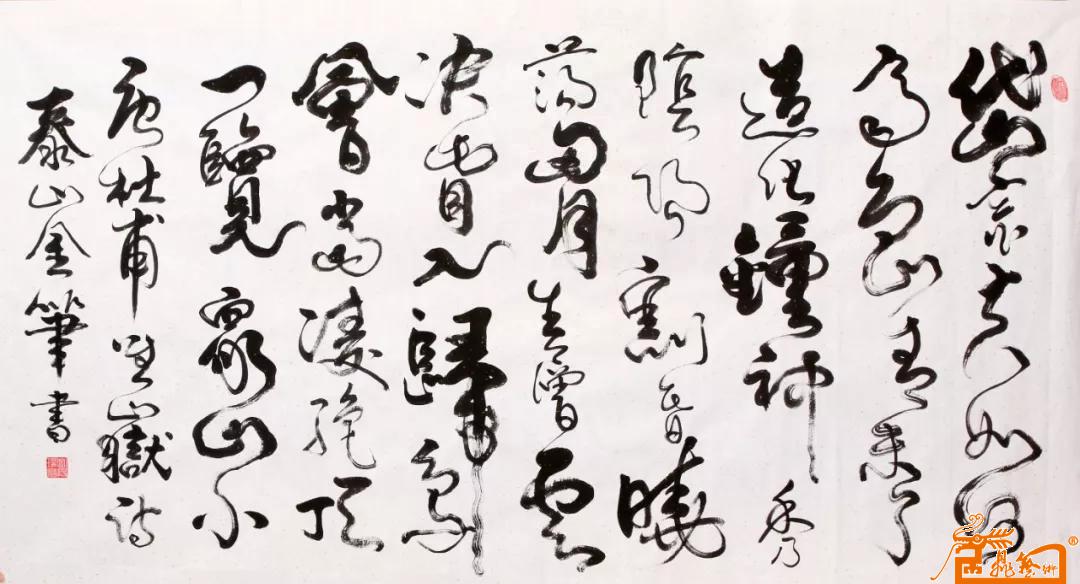 岱宗夫如何
齊魯青未了
造化鐘神秀
陰陽割昏曉
蕩胸生層雲
决眥入歸鳥
會當凌絕頂
一覽眾山小
唐杜甫望嶽詩
泰山金筆書